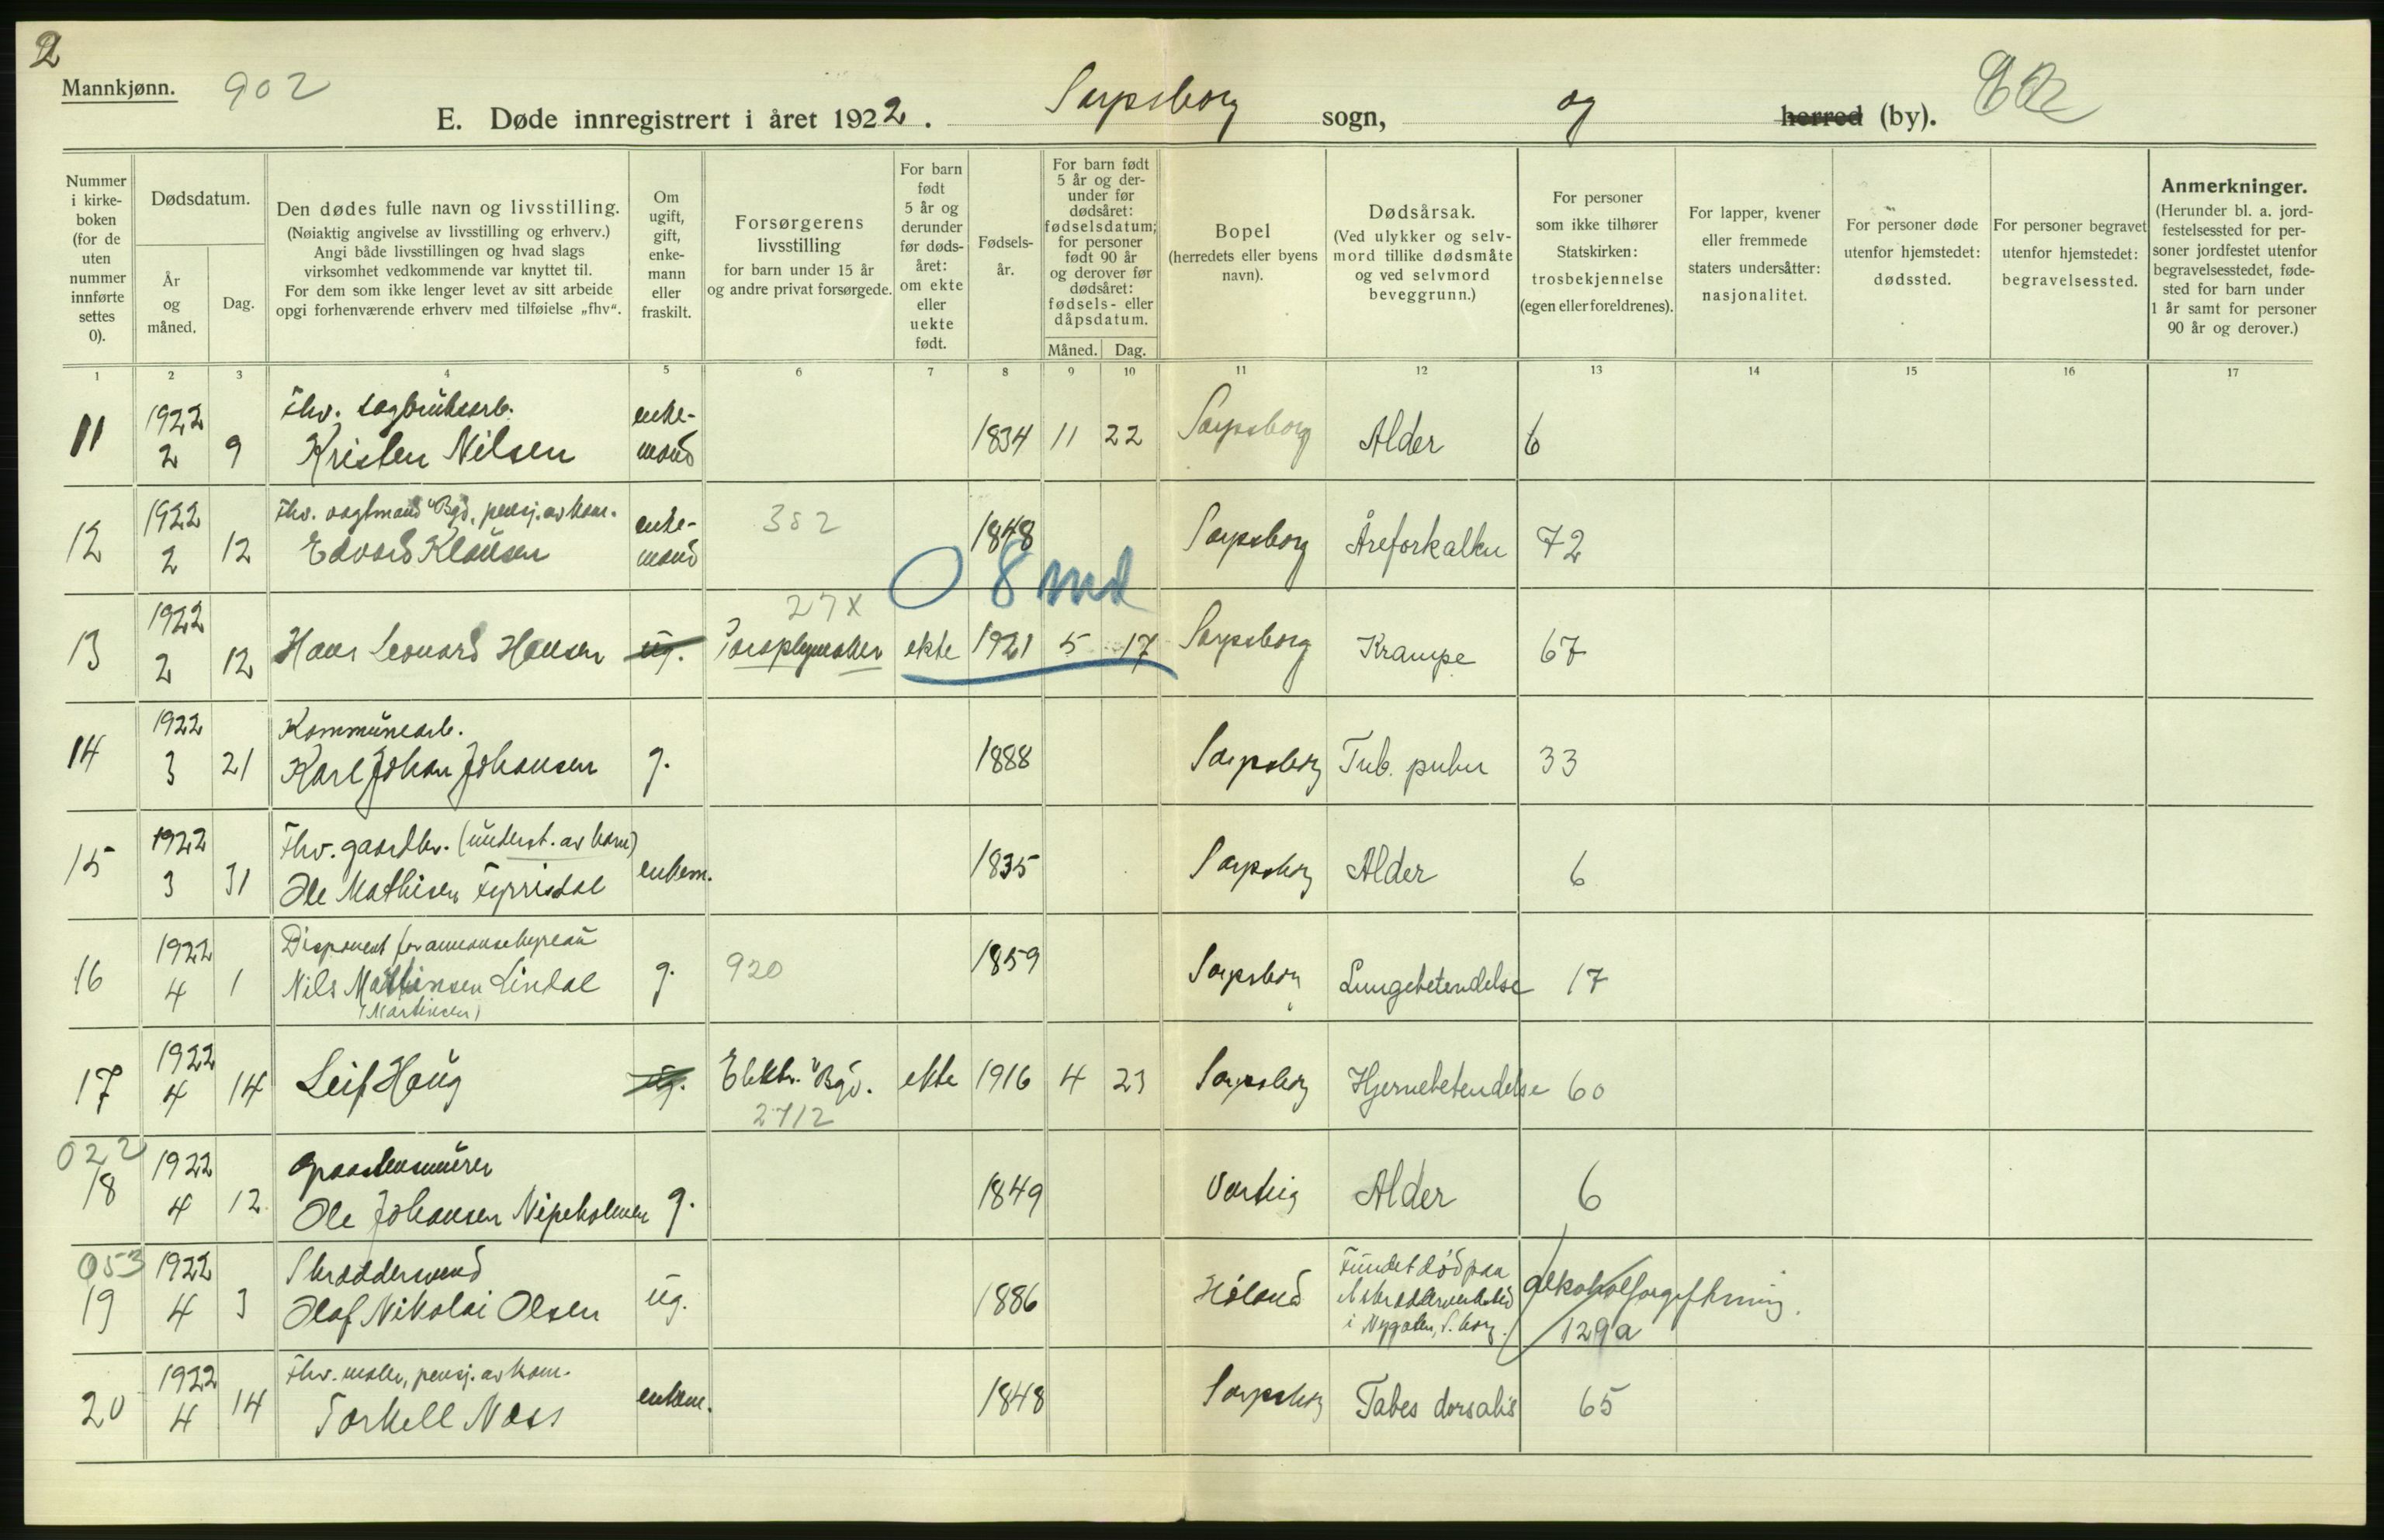 2
Mannkjønn. 902
E. Døde innregistrert i året 1922. Sarpsborg sogn, og herred (by).
Nummer i kirkeboken (for de uten nummer innførte settes 0).
Dødsdatum.
År og måned.
Dag.
Den dødes fulle navn og livsstilling.
(Nøiaktig angivelse av livsstilling og erhverv.)
Angi både livsstillingen og hvad slags
virksomhet vedkommende var knyttet til.
For dem som ikke lenger levet av sitt arbeide
opgi forhenværende erhverv med tilføielse „fhv“.
Om ugift, gift, enkemann eller fraskilt.
Forsørgerens
livsstilling
for barn under 15 år
og andre privat forsørgede.
For barn født 5 år og derunder før dødsåret: om ekte eller uekte født.
Fødselsår.
For barn født 5 år og derunder før dødsåret: fødselsdatum; for personer født 90 år og derover før dødsåret: fødsels- eller dåpsdatum.
Måned. Dag.
Bopel
(herredets eller byens
navn).
Dødsårsak.
(Ved ulykker og selv-
mord tillike dødsmåte
og ved selvmord
beveggrunn.)
For personer
som ikke tilhører
Statskirken:
trosbekjennelse
(egen eller foreldrenes).
For lapper, kvener
eller fremmede
staters undersåtter:
nasjonalitet.
For personer døde
utenfor hjemstedet:
dødssted.
For personer begravet
utenfor hjemstedet:
begravelsessted.
Anmerkninger.
(Herunder bl. a. jord-
festelsessted for per-
soner jordfestet utenfor
begravelsesstedet, føde-
sted for barn under
1 år samt for personer
90 år og derover.)
1 2 3 4 5 6 7 8 9 10 11 12 13 14 15 16 17
1922 Fhv. sagbruksarb. enke-
11 2 9 Kristen Nilsen mand 1834 11 22 Sarpsborg Alder 6
1922 Fhv. vagtmand "Bgd, pensj. av kom. enke- 382
12 2 12 Edvard Klausen mand 1848 Sarpsborg Åreforkalkn 72
0 8 md
1922 27x
13 2 12 Hans Leonard Hansen ug. ekte 1921 5 17 Sarpsborg Krampe 67
1922 Kommunearb.
14 3 21 Karl Johan Johansen g. 1888 Sarpsborg Tub. pulm 33
1922 Fhv. gaardbr. (underst. av kom)
15 3 31 Ole Mathisen Fyrrisdal enkem. 1835 Sarpsborg Alder 6
1922 Disponent for annonsebyreau
16 4 1 Nils Mathinsen Lindal g. 920 1859 Sarpsborg Lungebetendelse 17
(Martinsen)
1922
17 4 14 Leif Haug ug. Elektr. "Bgd. ekte 1916 4 23 Sarpsborg Hjernebetendelse 60
2712
022 1922
18 4 12 Ole Johansen Nipeholmen g. 1849 Varteig Alder 6
053 1922 Skræddersvend Fundet død paa
19 4 3 Olaf Nikolai Olsen ug. 1886 Høland alkoholforgiftning.
i Nygaten, S.borg. 129a
1922 Fhv. maler, pensj. av kom.
20 4 14 Torkell Næss enkem. 1848 Sarpsborg Tabes dorsalis 65